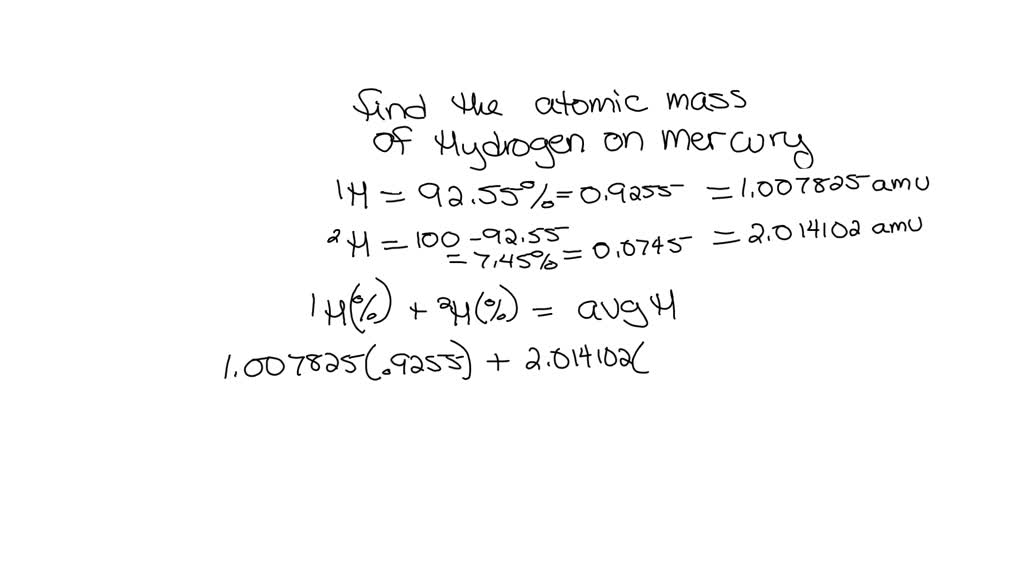 find the atomic mass
of Hydrogen on mercury
¹H = 92.55% = 0.9255 = 1.007825 amu
²H = 100 - 92.55
= 7.45% = 0.0745 = 2.014102 amu
¹H(%) + ²H(%) = avg H
1.007825(.9255) + 2.014102(